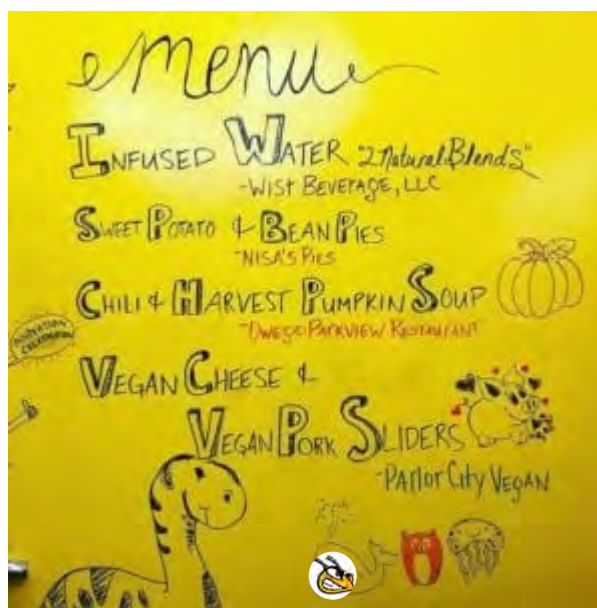 menu
INFUSED WATER "2 Natural Blends"
-WIST BEVERAGE, LLC
SWEET POTATO & BEAN PIES
-NISA'S PIES
CHILI & HARVEST PUMPKIN SOUP
-OWEGO PARKVIEW RESTAURANT
CELEBRATION
VEGAN CHEESE &
VEGAN PORK SLIDERS
-PARlOR CITY VEGAN